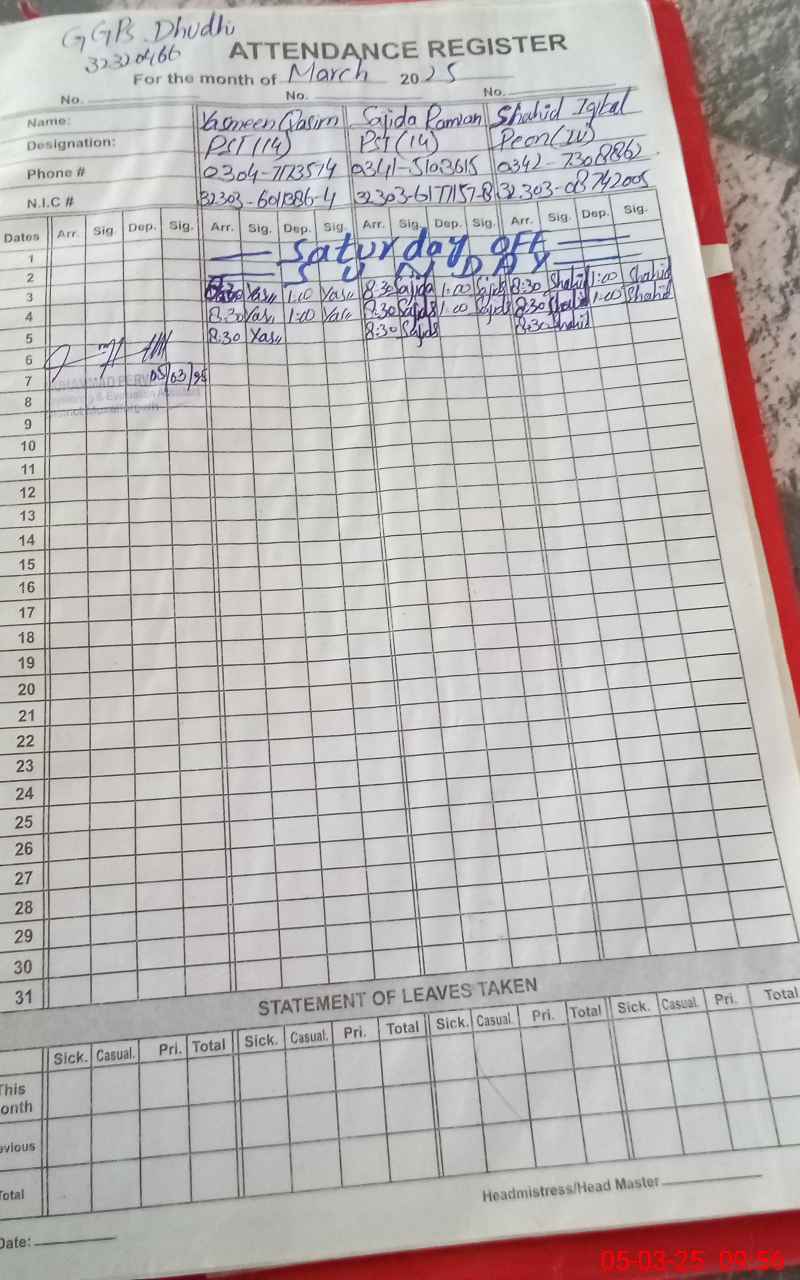 GGPS Dhudhi
32320466
ATTENDANCE REGISTER
For the month of March 2025
No. No. No.
Name: Yasmeen Qasim Sajida Ramzan Shahid Iqbal
Designation: PST (14) PST (14) Peon (IV)
Phone # 0304-7173574 0341-5103615 0342-7308862
N.I.C # 32303-601386-4 32303-6177157-8 32303-08742005
Dates Arr. Sig. Dep. Sig. Arr. Sig. Dep. Sig. Arr. Sig. Dep. Sig. Arr. Sig. Dep. Sig.
1 Saturday OFF
2 SUNDAY
3 8:30 Yas 1:00 Yas 8:30 Sajida 1:00 Sajida 8:30 Shahid 1:00 Shahid
4 8:30 Yas 1:00 Yas 8:30 Sajida 1:00 Sajida 8:30 Shahid 1:00 Shahid
5 8:30 Yas 8:30 Sajida 8:30 Shahid
6
7 05/03/25
8
9
10
11
12
13
14
15
16
17
18
19
20
21
22
23
24
25
26
27
28
29
30
31
STATEMENT OF LEAVES TAKEN
Sick. Casual. Pri. Total Sick. Casual. Pri. Total Sick. Casual. Pri. Total Sick. Casual. Pri. Total
This
onth
evious
Total
Headmistress/Head Master
Date:
05-03-25 09:56